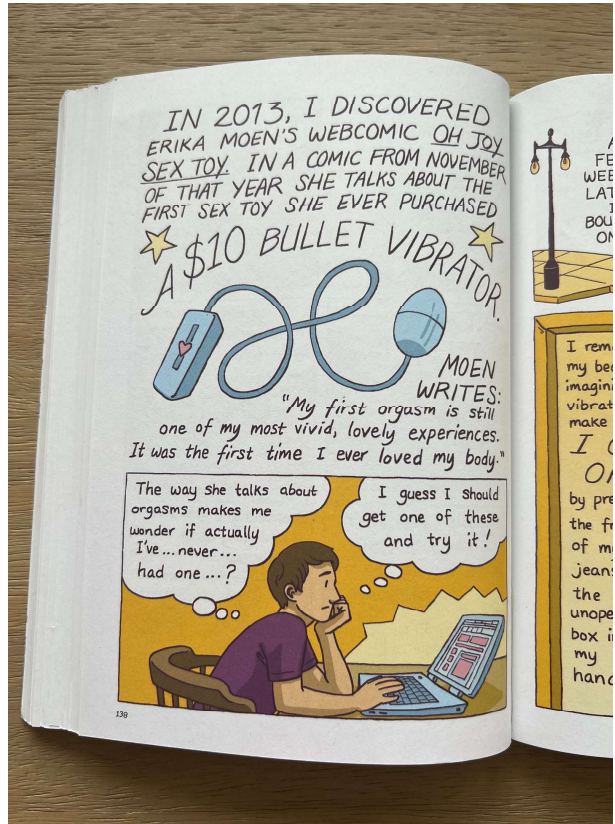 IN 2013, I DISCOVERED
ERIKA MOEN'S WEBCOMIC OH JOY
SEX TOY. IN A COMIC FROM NOVEMBER
OF THAT YEAR SHE TALKS ABOUT THE
FIRST SEX TOY SHE EVER PURCHASED
A $10 BULLET VIBRATOR.
MOEN
WRITES:
"My first orgasm is still
one of my most vivid, lovely experiences.
It was the first time I ever loved my body."
The way she talks about
orgasms makes me
wonder if actually
I've ... never ...
had one ... ?
I guess I should
get one of these
and try it!
138
I
my
vibrat
make
I
by pre
the
of
jean
the
unope
box
my
hand